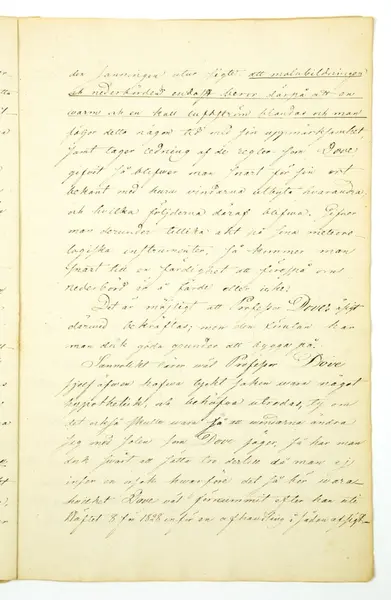 den sanningen utur sigte att molnbildningen
och nederbörden endast beror därpå att en
warm och en kall luftström blandas och man
följer detta någon tid med sin uppmärksamhet
samt tager ledning af de regler som Dove
gifvit så blifwer man snart för sin ort
bekant med huru vindarna utbyta hvarandra
och hvilka följderna däraf blifwa. Gifwer
man derunder tillika akt på sina meteoro-
logiska instrumenter, så kommer man
snart till en färdighet att förespå om
nederbörd är å färde eller icke.
Det är möjligt att Professor Doves åsigt
derwid bekräftas; men den kunskap har
man dock goda grunder att bygga på.
Sannolikt lärer wäl Professor Dove
sjelf äfwen hafwa tyckt saken wara något
hypothetisk, och behöfwa utredas, ty om
det också skulle wara så att windarna ändra
sig med solen som Dove säger, så har man
dock svårt att sätta tro dertill då man ej
inser en orsak hwarföre det så bör wara
hwilket Dove wäl förnummit efter han uti
Häftet 8 för 1828 inför en afhandling i sådan afsigt